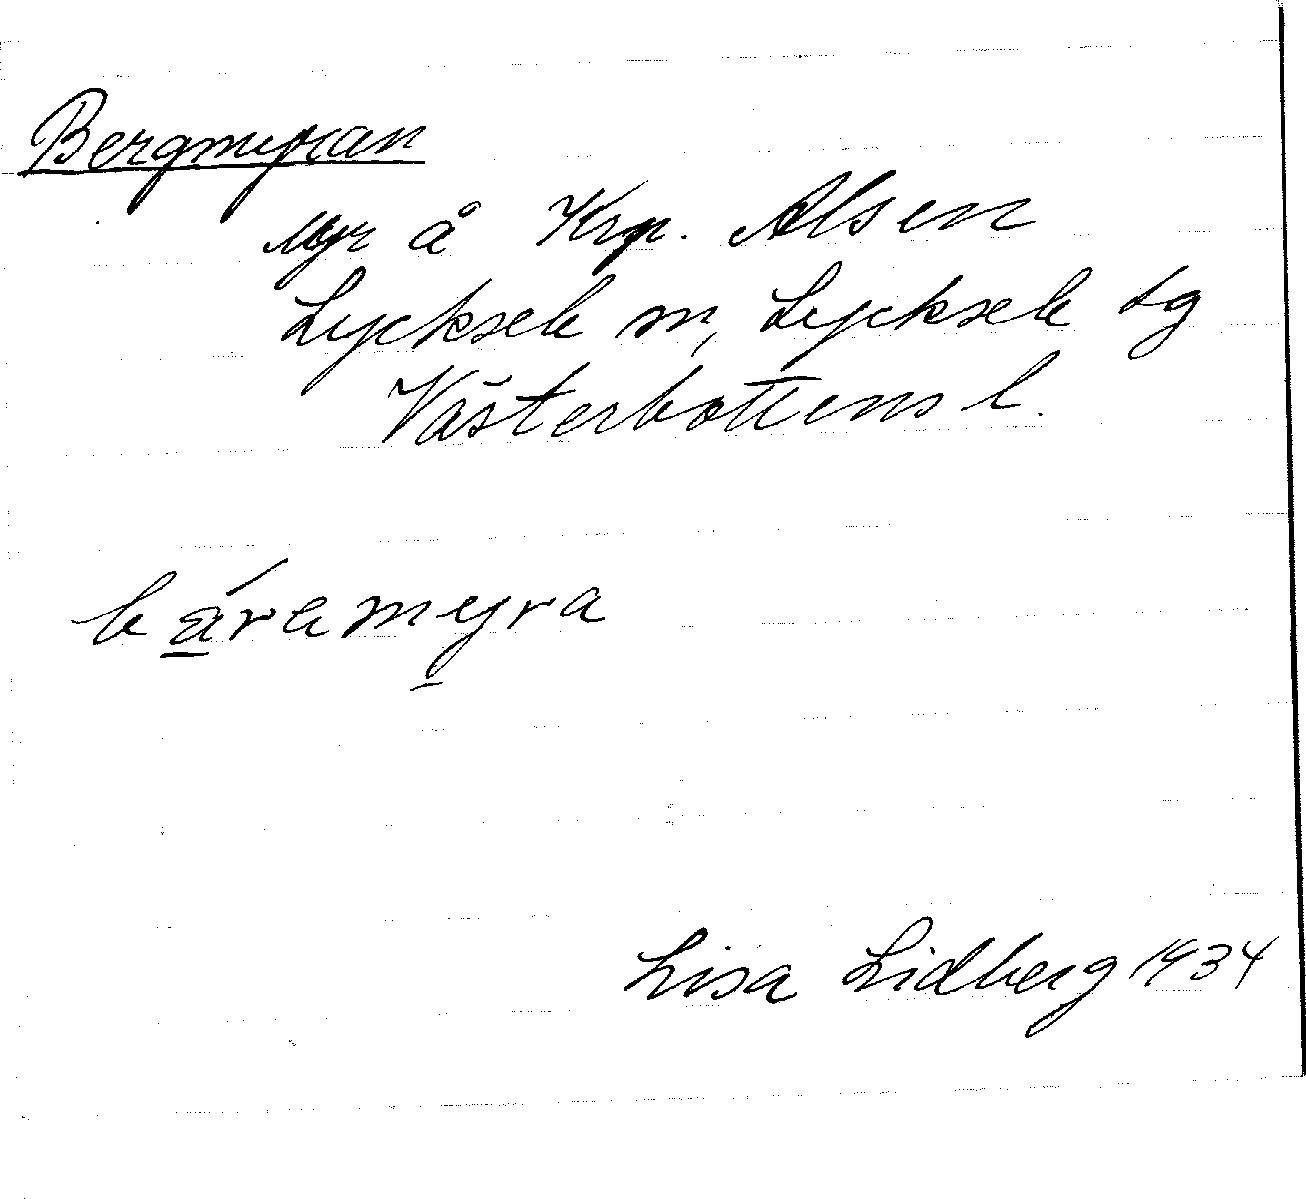 Bergmyran
Myr å Krp. Alsen
Lycksele sn, Lycksele lg
Västerbottens l.
báramyra
Lisa Lidberg 1934